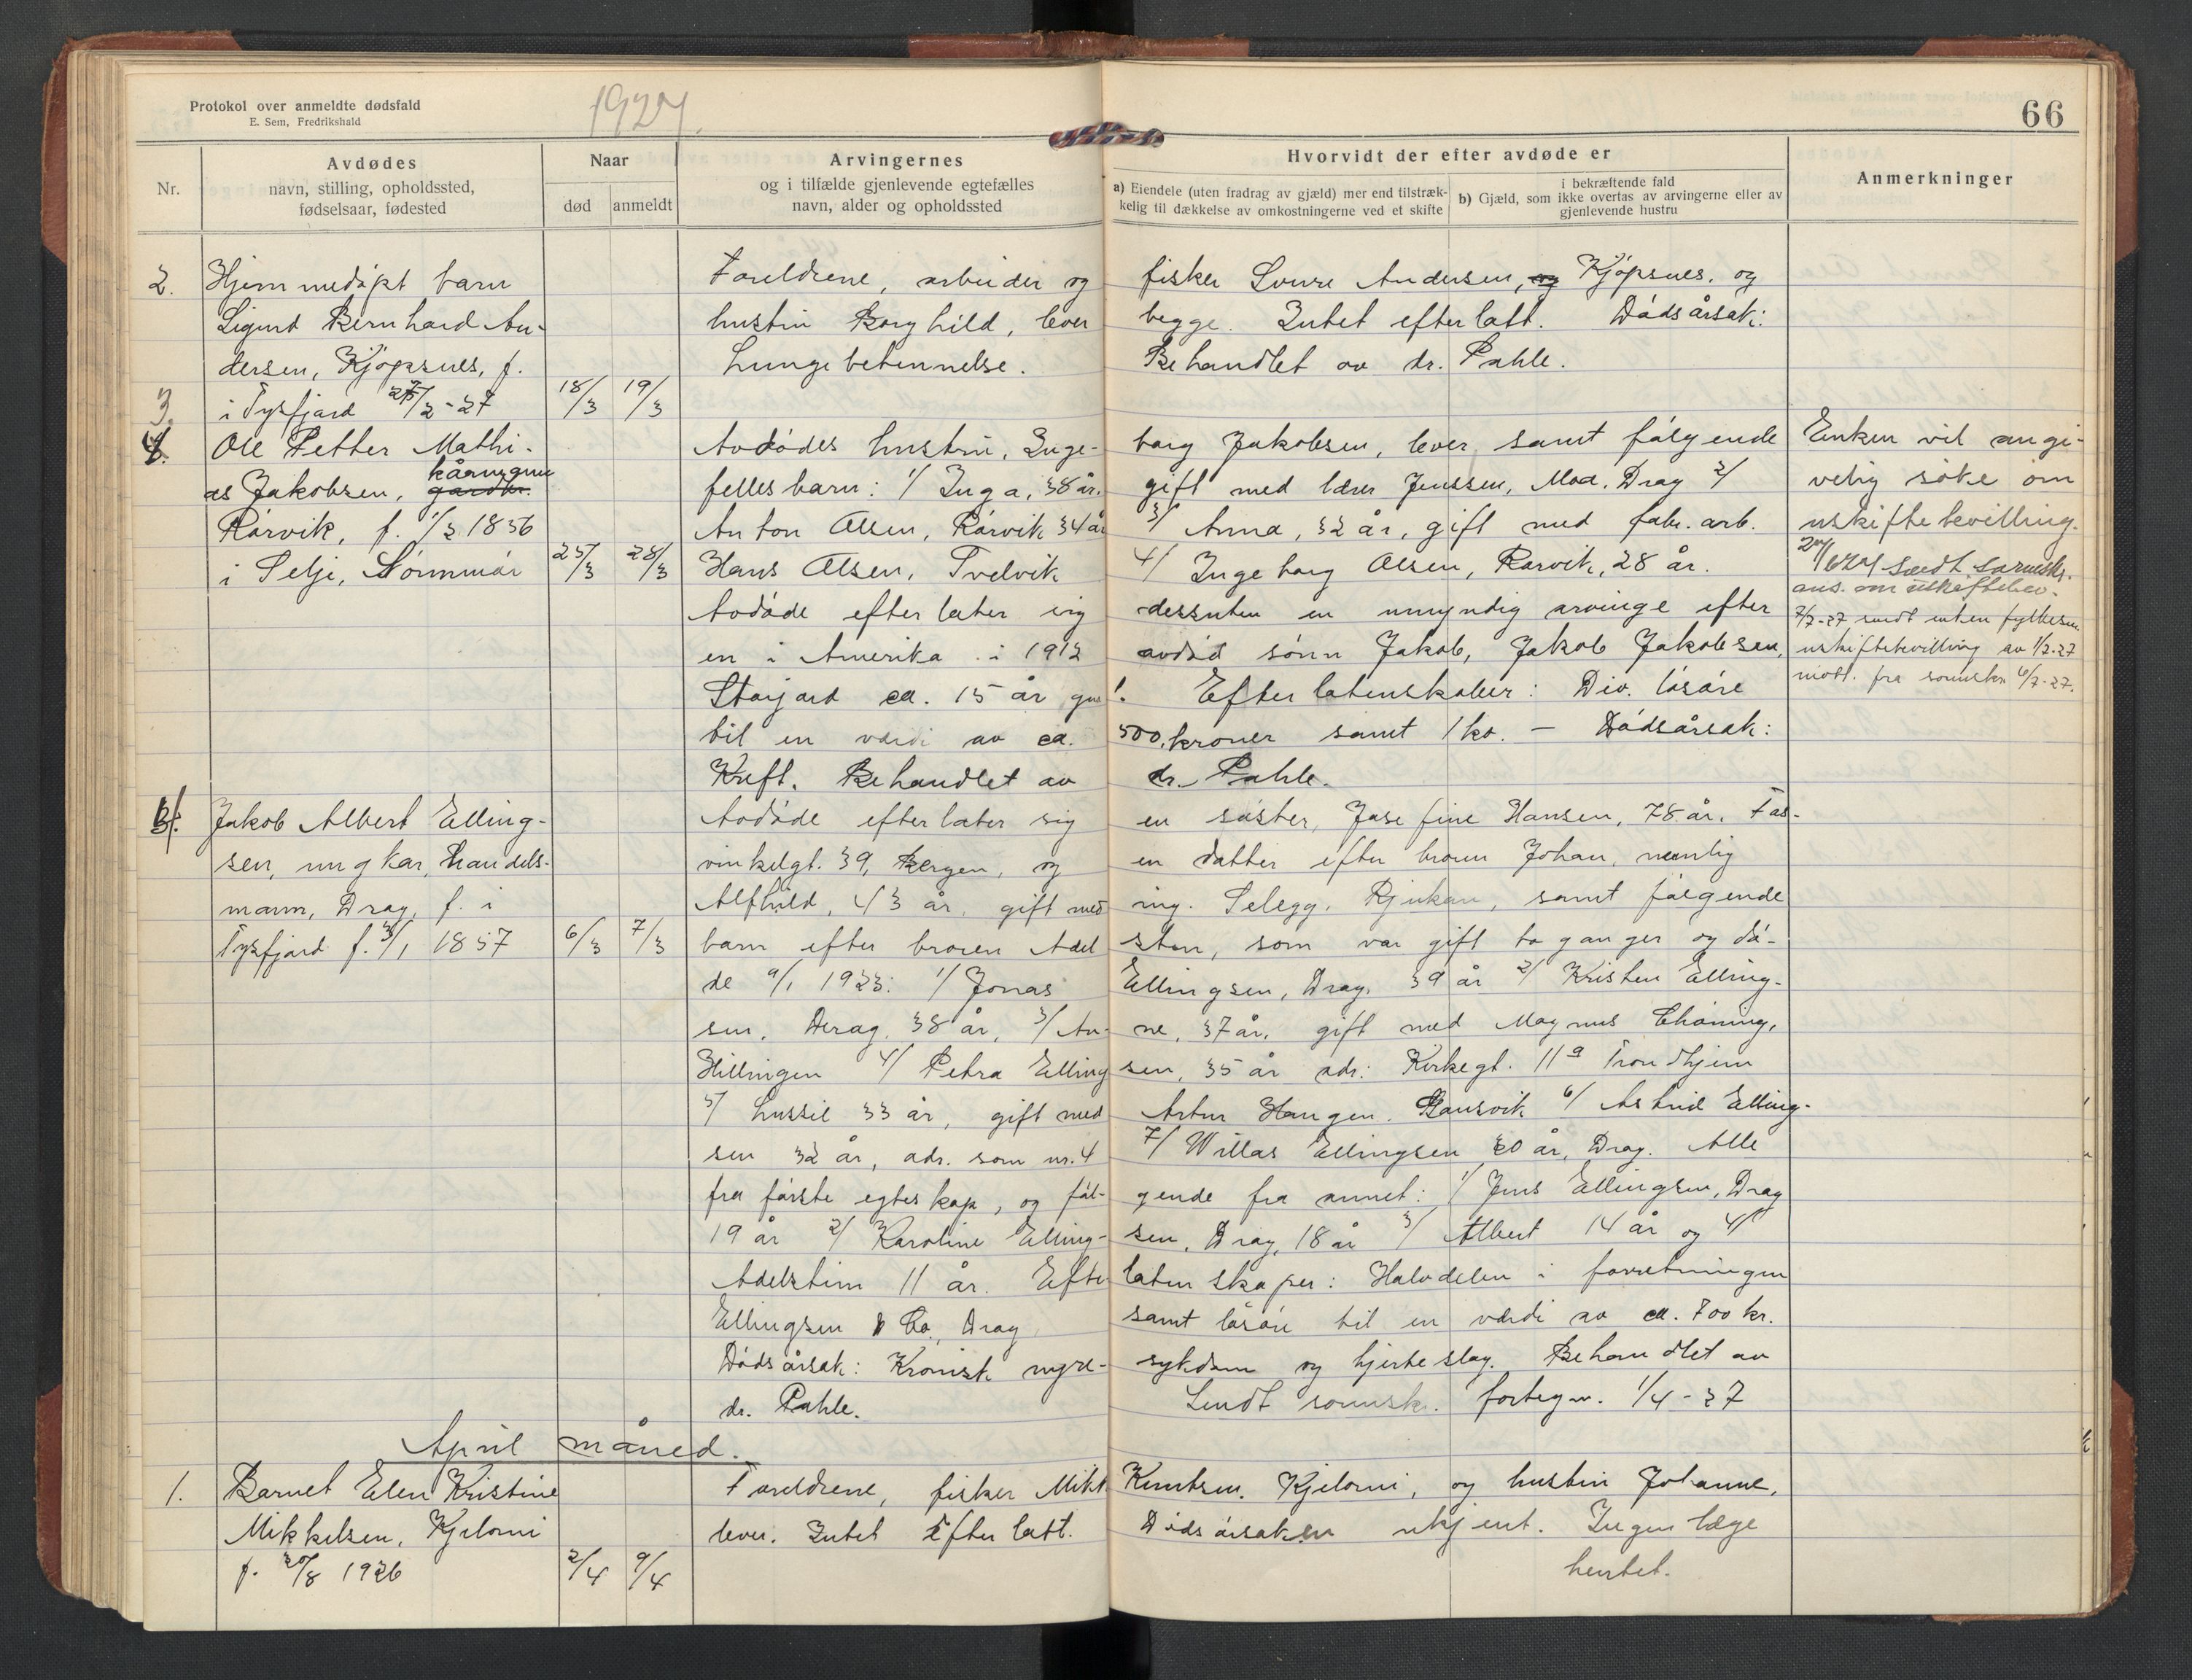 Protokol over anmeldte dødsfald
E. Sem, Fredrikshald
1927.
66
Nr.
Avdødes
navn, stilling, opholdssted,
fødselsaar, fødested
Naar
død
anmeldt
Arvingernes
og i tilfælde gjenlevende egtefælles
navn, alder og opholdssted
Hvorvidt der efter avdøde er
a) Eiendele (uten fradrag av gjæld) mer end tilstræk-
kelig til dækkelse av omkostningerne ved et skifte
i bekræftende fald
b) Gjæld, som ikke overtas av arvingerne eller av
gjenlevende hustru
Anmerkninger
2. Hjemmedøpt barn Foreldrene, arbeider og fisker Sverre Andersen, og Kjøpsnes, og
Sigurd Bernhard An- hustru Borghild, lever begge. Intet efterlatt. Dødsårsak:
dersen, Kjøpsnes, f. Lungebetennelse. Behandlet av dr. Pahle.
3. i Tysfjord /2-27 18/3 19/3
4. Ole Petter Mathi- Avdødes hustru, Inge- borg Jakobsen, lever, samt følgende Enken vil angi-
as Jakobsen, kårmann gårdbr. felles barn: 1/ Inga, 38 år, gift med lærer Jenssen, Moa, Drag 2/ velig søke om
Rørvik, f. 1/2 1856 Anton Olsen, Rørvik 34 år 3/ Anna, 32 år, gift med fabr. arb. uskiftebevilling.
i Selje, Sørnmør 25/3 28/3 Hans Olsen, Tvelvik 4/ Ingeborg Olsen, Rørvik, 28 år. 27/6 27 sendt sorenskr.
ans. om uskiftebev.
Avdøde efterlater sig dessuten en umyndig arvinge efter 7/7-27 sendt enken fylkesm.
en i Amerika i 1912 avdød sønn Jakob, Jakob Jakobsen, uskiftebevilling av 1/7-27
Storjord ca. 15 år gml. Efterlatenskaper: Div. løsøre mott. fra sorenskr 6/7-27.
til en verdi av ca. 500, kroner samt 1 ko. — Dødsårsak:
Kreft. Behandlet av dr. Pahle.
Jakob Albert Elling- Avdøde efterlater sig en søster, Josefine Hansen, 78 år, Fos-
sen, ungkar, handels- vinkelgt. 39, Bergen, og en datter efter broren Johan, nemlig
mann, Drag, f. i Alfhild, 43 år, gift med ing. Selegg, Rjukan, samt følgende
Tysfjord f. /1 1857 6/3 7/3 barn efter broren Adel sten, som var gift to ganger og dø-
de 9/1 1923: 1/ Jonas Ellingsen, Drag, 39 år 2/ Kristen Elling-
sen, Drag, 38 år, 3/ An- ne, 37 år, gift med Magnus Thoning,
Hillingen 4/ Petra Elling sen, 35 år adr: Kirkegt. 11a Trondhjem
5/ Lussie 33 år, gift med Artur Haugen, Bausvik 6/ Astrid Elling-
sen 32 år, adr. som nr. 4 7/ Willas Ellingsen 30 år, Drag. Alle
fra første egteskap, og føl- gende fra annet: 1/ Jens Ellingsen, Drag
19 år 2/ Karoline Elling- sen, Drag, 18 år 3/ Albert 14 år og 4/
Adelstein 11 år. Efter latenskaper: Halvdelen i forretningen
Ellingsen & Co., Drag samt løsøre til en verdi av ca. 700 kr.
Dødsårsak: Kronisk nyre- sykdom og hjerteslag. Behandlet av
dr. Pahle. Sendt sorensk. fortegn. 1/4-27
April måned.
1. Barnet Elen Kristine Foreldrene, fisker Mikk Knutsen, Kjelorni, og hustru Johanne,
Mikkelsen, Kjelorni lever. Intet efterlatt. Dødsårsaken ukjent. Ingen læge
f. 20/8 1926 2/4 9/4 hentet.